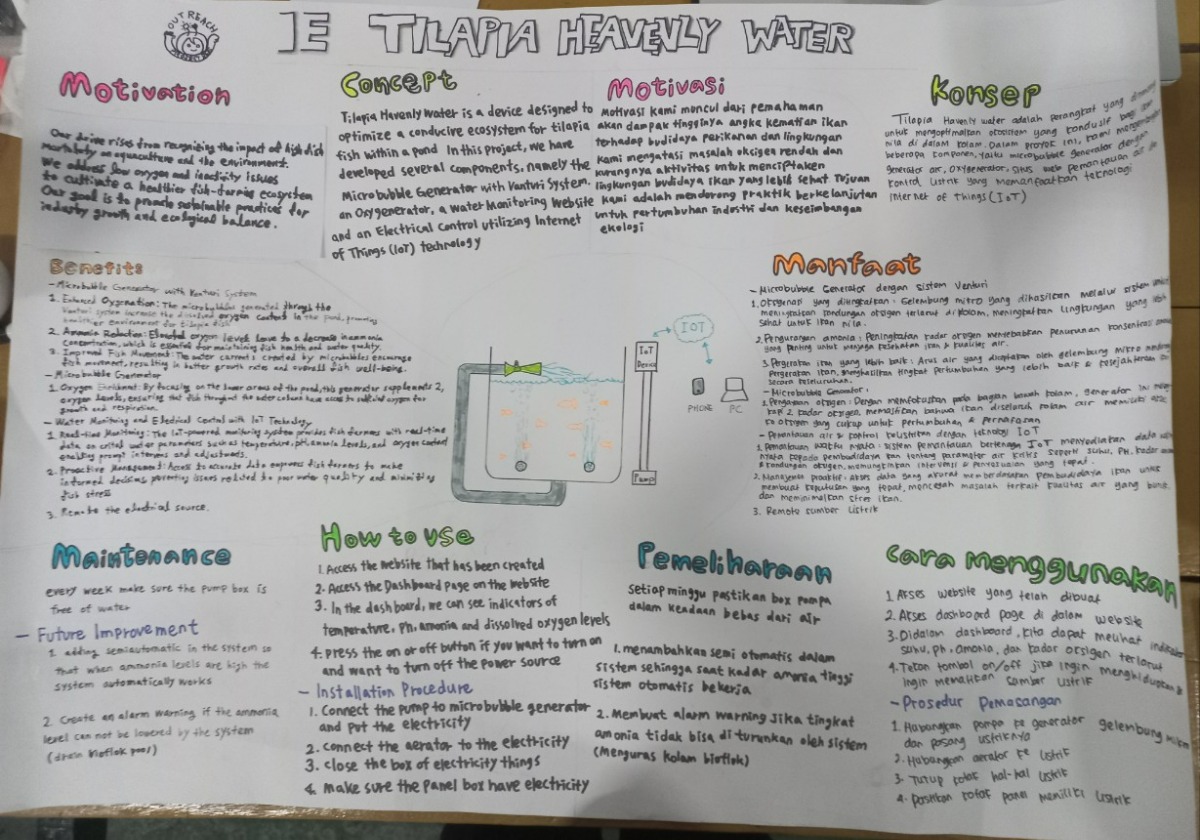 OUT REACH
JE TILAPIA HEAVENLY WATER
Motivation
Our drive rises from recognizing the impact of high fish
mortality on aquaculture and the environment.
We address low oxygen and inactivity issues
to cultivate a healthier fish-farming ecosystem
Our goal is to promote sustainable practices for
industry growth and ecological balance.
Concept
Tilapia Heavenly Water is a device designed to
optimize a conducive ecosystem for tilapia
fish within a pond In this project, we have
developed several components, namely the
Microbubble Generator with Venturi System,
an Oxygenerator, a Water Monitoring Website
and an Electrical Control utilizing Internet
of Things (IoT) technology
Motivasi
Motivasi kami muncul dari pemahaman
akan dampak tingginya angka kematian ikan
terhadap budidaya perikanan dan lingkungan
kami mengatasi masalah oksigen rendah dan
kurangnya aktivitas untuk menciptakan
lingkungan budidaya ikan yang lebih sehat Tujuan
kami adalah mendorong praktik berkelanjutan
untuk pertumbuhan industri dan keseimbangan
ekologi
Konsep
Tilapia Havenly water adalah perangkat yang
untuk mengoptimalkan ekosistem yang kondusif bagi
nila di dalam kolam. Dalam proyek ini, kami
beberapa komponen, yaitu microbubble generator dengan
generator air, oxygenerator, situs web pemantauan air
kontrol listrik yang memanfaatkan teknologi
Internet of Things (IoT)
Benefits
- Microbubble Generator with Venturi System
1. Enhanced Oxygenation: The microbubbles generated through the
Venturi system increase the dissolved oxygen content in the pond, promoting
healthier environment for tilapia fish
2. Ammonia Reduction: Elevated oxygen levels leave to a decrease in ammonia
concentration, which is essential for maintaining fish health and water quality.
3. Improved Fish Movement: The water currents created by microbubbles encourage
fish movement, resulting in better growth rates and overall fish well-being.
- Microbubble Generator
1. Oxygen Enrichment: By focusing on the lower areas of the pond, this generator supplements 2,
oxygen levels, ensuring that fish throughout the water column have access to sufficient oxygen for
growth and respiration.
- Water Monitoring and Electrical Control with IoT Technology
1. Real-time Monitoring: The IoT-powered monitoring system provides fish farmers with real-time
data on critical water parameters such as temperature, pH, amonia levels, and oxygen content
enabling prompt interventions and adjustments.
2. Proactive Management: Access to accurate data empowers fish farmers to make
informed decisions preventing issues related to poor water quality and minimizing
fish stress
3. Remote the electrical source.
IOT
IoT
Device
PHONE
PC
Pump
Manfaat
- Microbubble Generator dengan Sistem Venturi
1. Oksigenasi yang ditingkatkan: Gelembung mikro yang dihasilkan melalui sistem
meningkatkan kandungan oksigen terlarut di kolam, meningkatkan lingkungan yang lebih
sehat untuk ikan nila.
2. Pengurangan amonia: Peningkatan kadar oksigen menyebabkan penurunan konsentrasi
yang penting untuk menjaga kesehatan ikan & kualitas air.
3. Pergerakan ikan yang lebih baik: Arus air yang diciptakan oleh gelembung mikro
Pergerakan ikan, menghasilkan tingkat pertumbuhan yang lebih baik & kesejahteraan
secara keseluruhan.
- Microbubble Generator:
1. Pengayaan oksigen: Dengan memfokuskan pada bagian bawah kolam, generator ini
kapi 2 kadar oksigen, memastikan bahwa ikan diseluruh kolam air memiliki
ke oksigen yang cukup untuk pertumbuhan & pernafasan
- Pemantauan air & kontrol kelistrikan dengan teknologi IoT
1. Pemantauan waktu nyata: sistem pemantauan bertenaga IoT menyediakan data
nyata kepada pembudidaya ikan tentang parameter air kritis seperti suhu, PH, kadar
& kandungan oksigen, memungkinkan intervensi & penyesuaian yang tepat.
2. Manajemen proaktif: Akses data yang akurat memberdayakan pembudidaya ikan untuk
membuat keputusan yang tepat, mencegah masalah terkait kualitas air yang buruk
dan meminimalkan stres ikan.
3. Remote sumber listrik
Maintenance
every week make sure the pump box is
free of water
- Future Improvement
1. adding semiautomatic in the system so
that when ammonia levels are high the
system automatically works
2. Create an alarm warning if the ammonia
level can not be lowered by the system
(drain bioflok pool)
How to use
1. Access the website that has been created
2. Access the Dashboard Page on the website
3. In the dashboard, we can see indicators of
temperature, Ph, amonia and dissolved oxygen levels
4. Press the on or off button if you want to turn on
and want to turn off the power source
- Installation Procedure
1. Connect the pump to microbubble generator
and put the electricity
2. connect the aerator to the electricity
3. close the box of electricity things
4. make sure the panel box have electricity
Pemeliharaan
Setiap minggu pastikan box pompa
dalam keadaan bebas dari air
1. menambahkan semi otomatis dalam
sistem sehingga saat kadar amonia tinggi
sistem otomatis bekerja
2. Membuat alarm warning jika tingkat
amonia tidak bisa di turunkan oleh sistem
(Menguras kolam bioflok)
Cara menggunakan
1. Akses website yang telah dibuat
2. Akses dashboard page di dalam website
3. Didalam dashboard, kita dapat melihat indikator
suhu, ph, amonia, dan kadar oksigen terlarut
4. Tekan tombol on/off jika ingin menghidupkan &
ingin mematikan sumber listrik
- Prosedur Pemasangan
1. Hubungkan pompa ke generator gelembung mikro
dan pasang listriknya
2. Hubungkan aerator ke listrik
3. Tutup kotak hal-hal listrik
4. Pastikan kotak panel memiliki listrik